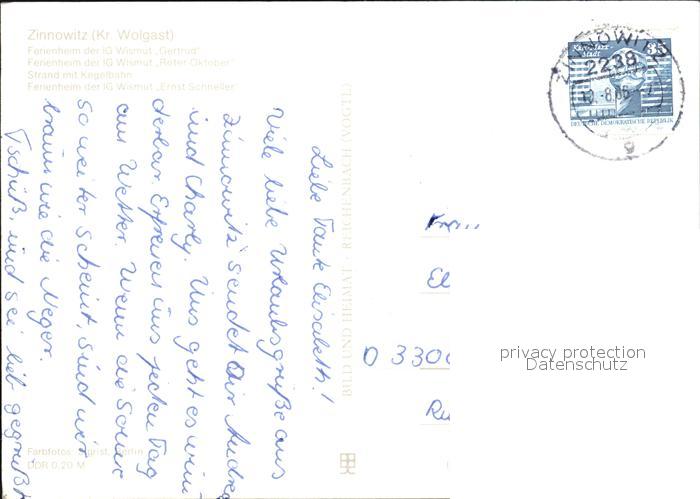 Zinnowitz (Kr. Wolgast)
Ferienheim der IG Wismut „Gertrud"
Ferienheim der IG Wismut „Roter Oktober"
Strand mit Kegelbahn
Ferienheim der IG Wismut „Ernst Schneller"
Liebe Tante Elisabeth!
Viele liebe Urlaubsgrüße aus
Zinnowitz sendet Dir Andrea
und Charly. Uns geht es wun-
derbar. Erfreuen uns jeden Tag
am Wetter. Wenn die Sonne
so weiter scheint, sind wir
braun wie die Neger.
Tschüß, und sei lieb gegrüßt
BILD UND HEIMAT REICHENBACH
ZINNOWITZ
2238
Karl-Marx-
Stadt
35
DEUTSCHE DEMOKRATISCHE REPUBLIK
El
D 330
Ru
privacy protection
Datenschutz
Farbfotos: Berlin
DDR 0,20 M